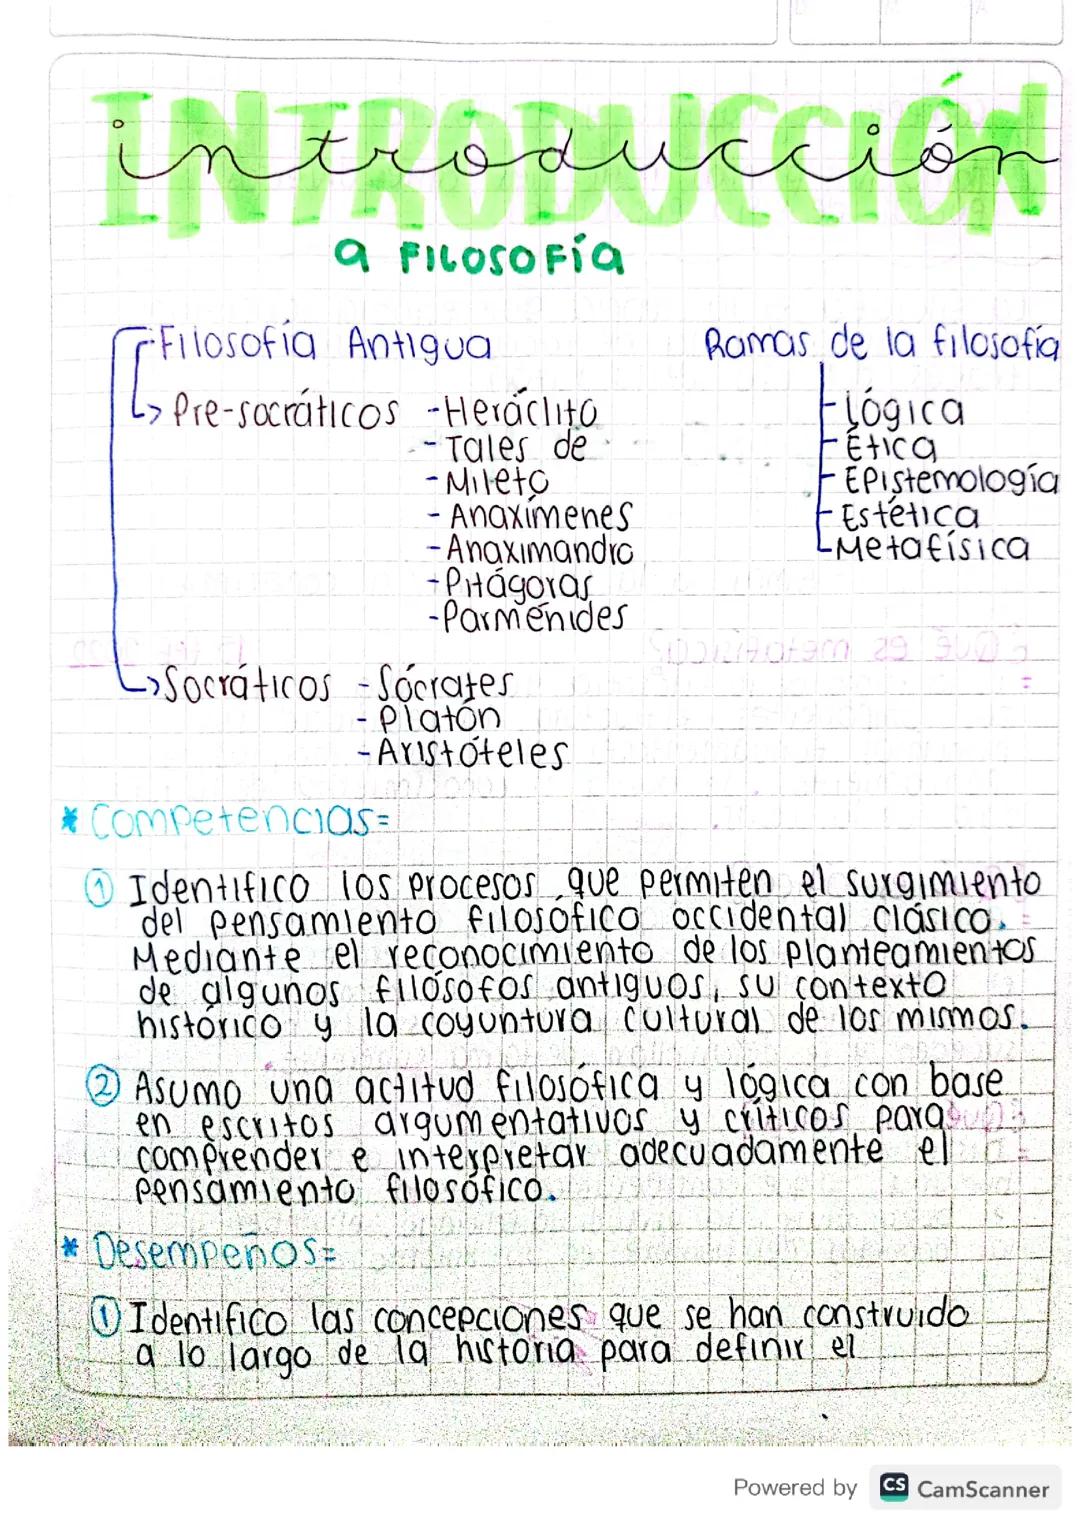 INTRODUCCIÓN
introducción
a FILOSOFía
Filosofía Antigua
Pre-socráticos -Heráclito
-Tales de
-Mileto
-Anaxímenes
-Anaximandro
-Pitágoras
-Parménides
Socráticos -Sócrates
-Platón
-Aristóteles
Ramas de la filosofía
-Lógica
-Ética
-Epistemología
-Estética
-Metafísica
* Competencias=
① Identifico los procesos que permiten el surgimiento
del pensamiento filosófico occidental clásico.
Mediante el reconocimiento de los planteamientos
de algunos filósofos antiguos, su contexto
histórico y la coyuntura cultural de los mismos.
② Asumo una actitud filosófica y lógica con base
en escritos argumentativos y críticos para
comprender e interpretar adecuadamente el
pensamiento filosófico.
* Desempeños=
① Identifico las concepciones que se han construido
a lo largo de la historia para definir el
Powered by CS CamScanner